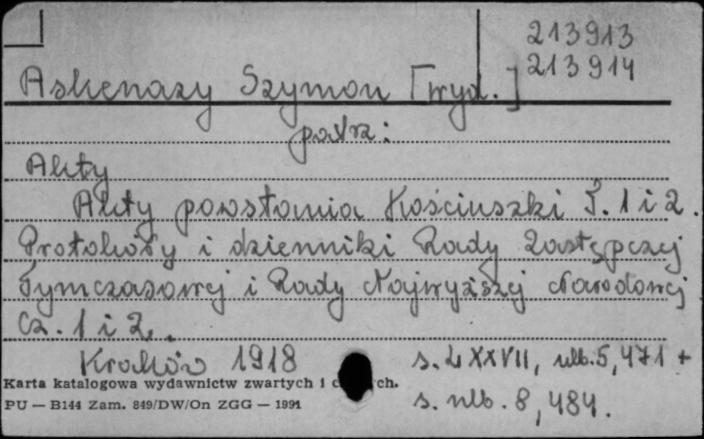 213913
213914
Askenazy Szymon [wyd.]
patrz:
Akty
Akty powstania Kościuszki T. 1 i 2.
Protokoły i dzienniki Rady Zastępczej
Tymczasowej i Rady Najwyższej Narodowej
Cz. 1 i 2.
Kraków 1918 s. LXXVII, nlb. 5, 471 +
Karta katalogowa wydawnictw zwartych i
PU — B144 Zam. 849/DW/On ZGG — 1991 s. nlb. 8, 484.